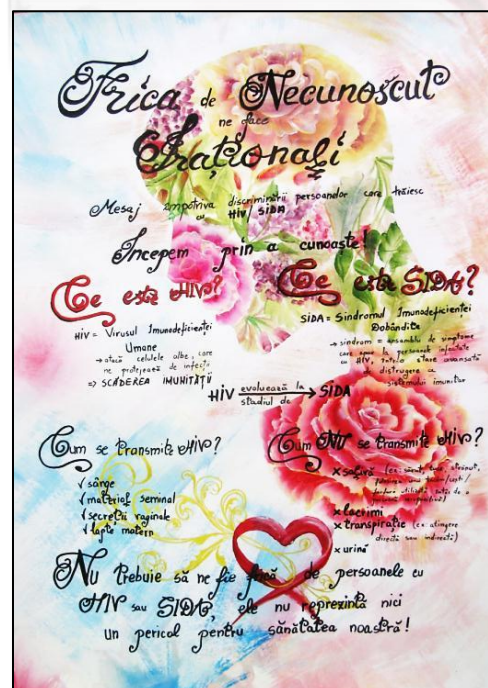 Frica de Necunoscut
ne face
Iraționali
Mesaj împotriva discriminării persoanelor care trăiesc
cu HIV SIDA
Începem prin a cunoaște!
Ce este HIV?
Ce este SIDA?
HIV = Virusul Imunodeficienței
Umane
→ atacă celulele albe, care
ne protejează de infecții
=> SCĂDEREA IMUNITĂȚII
SIDA = Sindromul Imunodeficienței
Dobândite
→ sindrom = ansamblu de simptome
care apar la persoanele infectate
cu HIV, într-o stare avansată
de distrugere a
sistemului imunitar
HIV evoluează la SIDA
stadiul de
Cum se transmite HIV?
√ sânge
√ material seminal
√ secreții vaginale
√ lapte matern
Cum NU se transmite HIV?
x salivă (ex: sărut, tuse, strănut,
x lacrimi
x transpirație (ex: atingere
directă sau indirectă)
x urină
Nu trebuie să ne fie frică de persoanele cu
HIV sau SIDA, ele nu reprezintă nici
un pericol pentru sănătatea noastră!